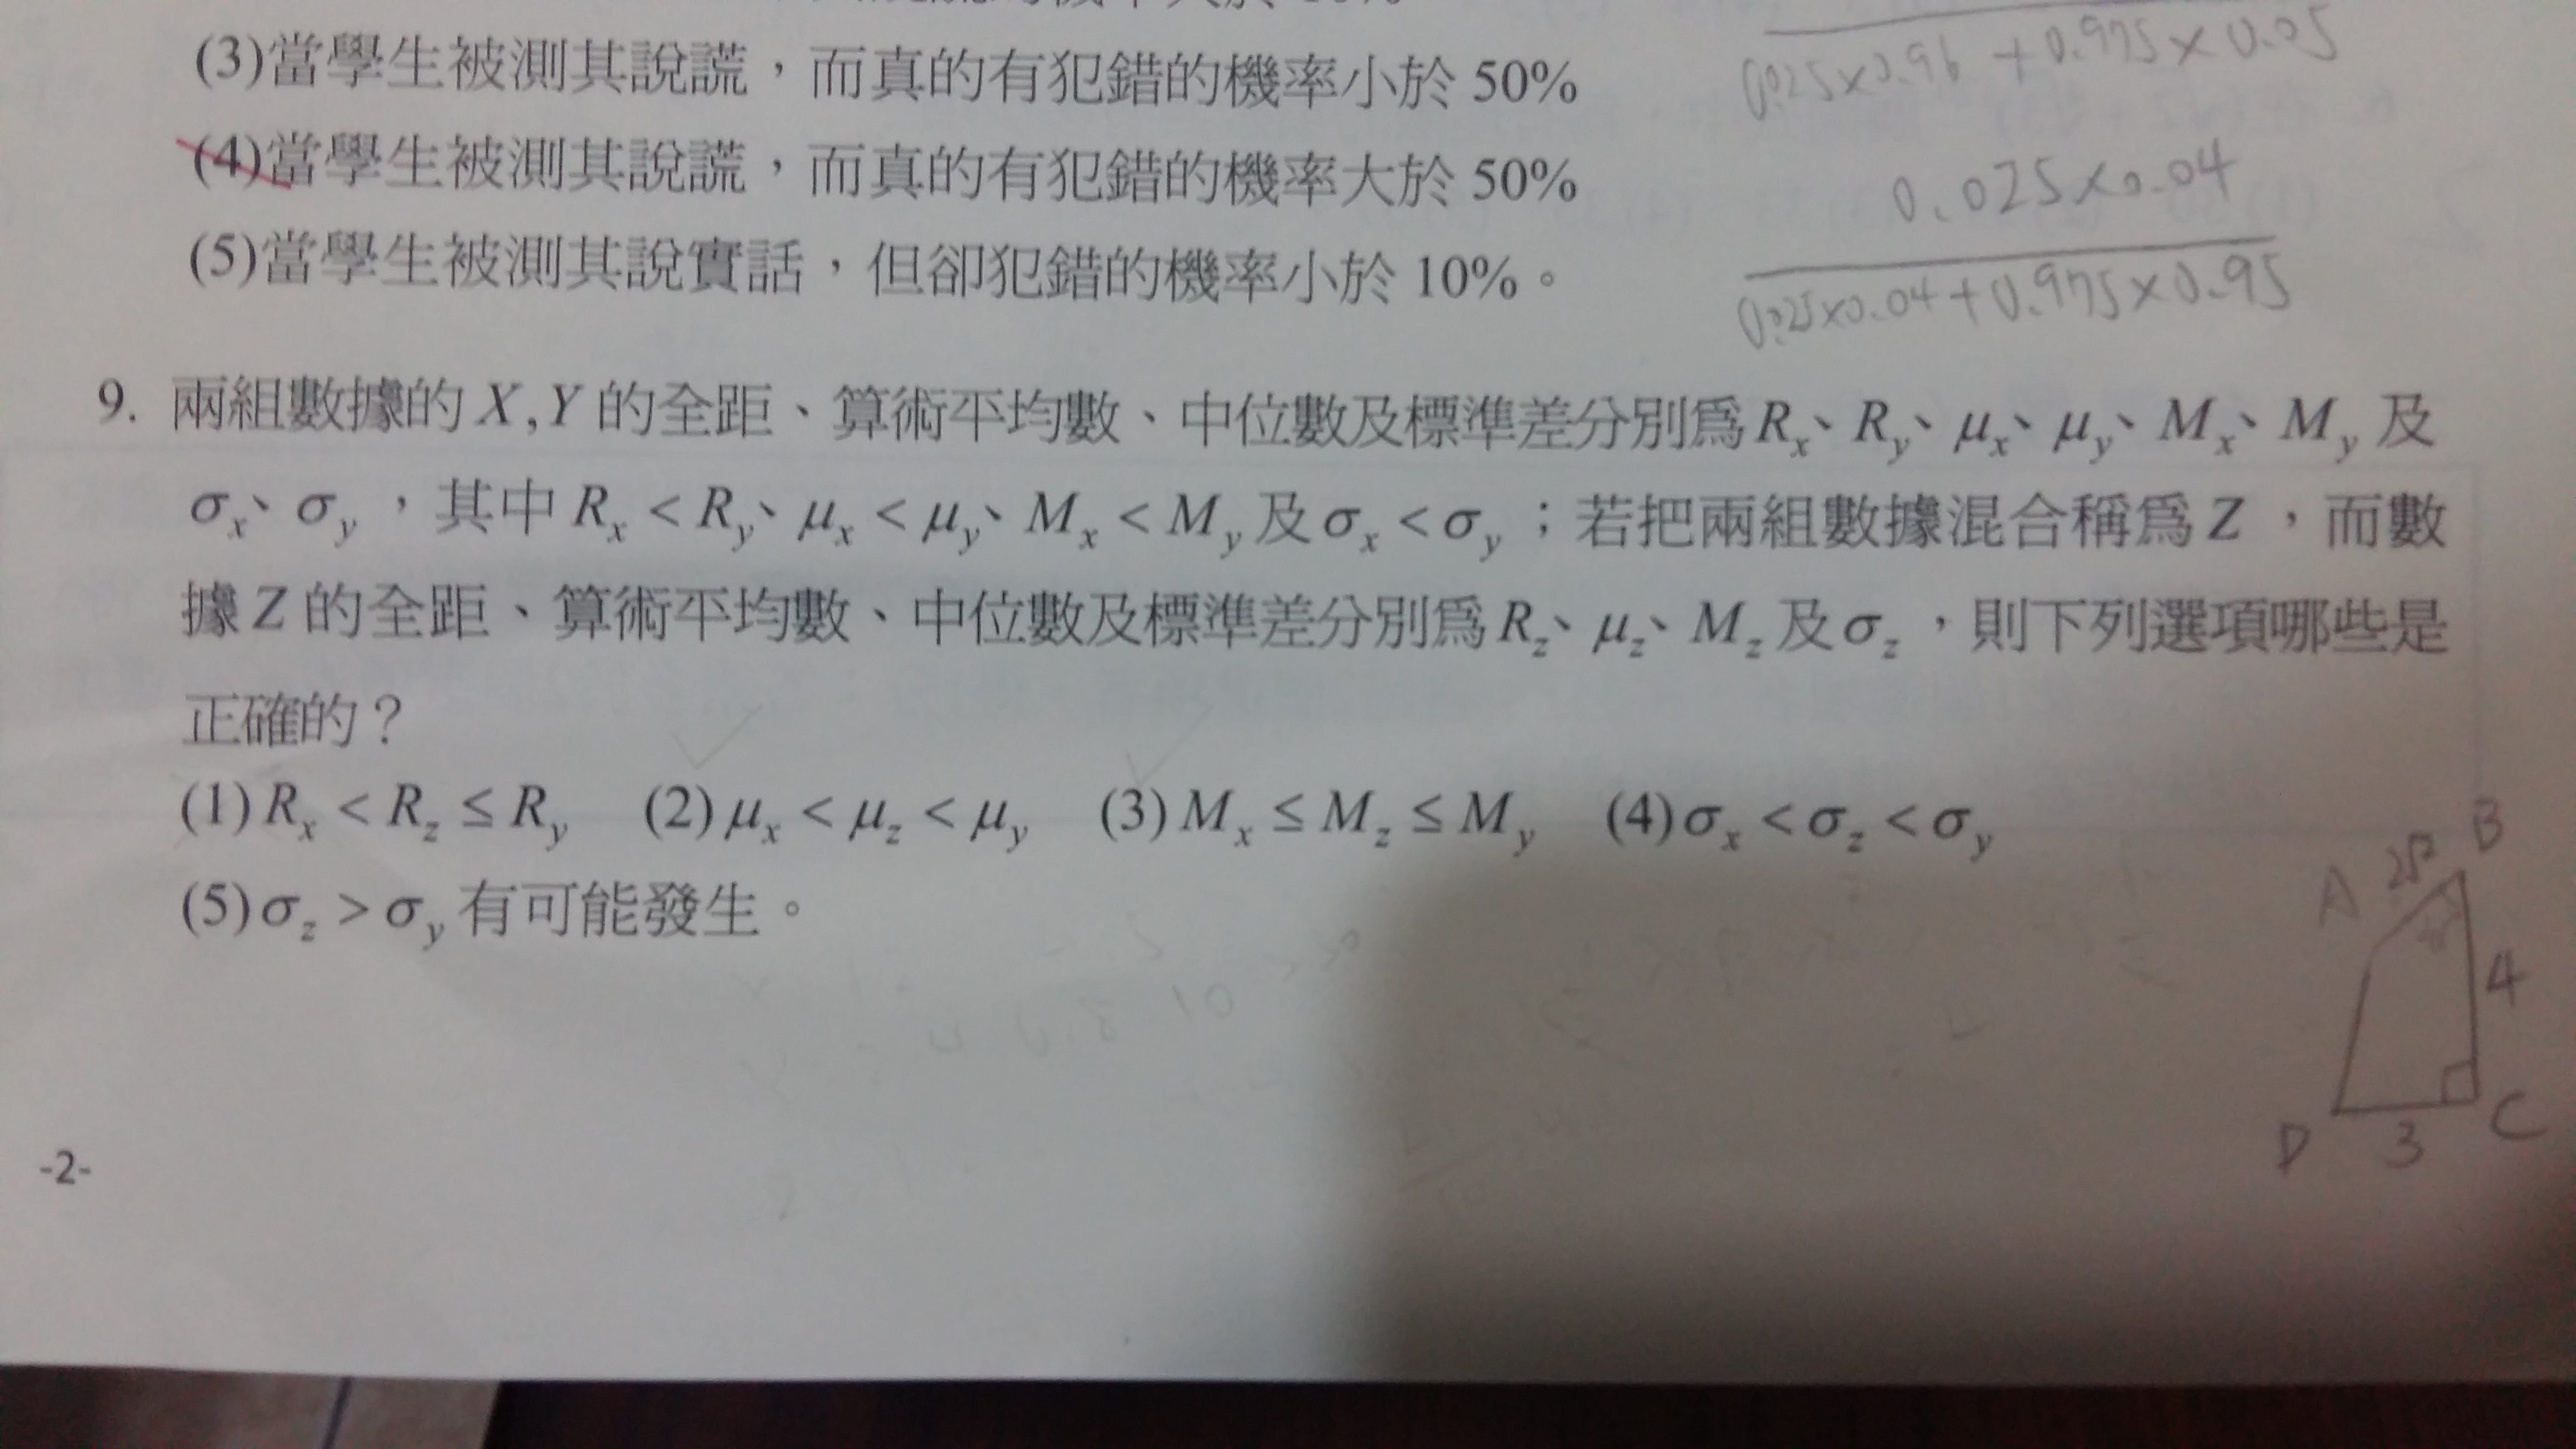 (3)當學生被測其說謊，而真的有犯錯的機率小於 50%
0.025×0.96 + 0.975×0.05
(4)當學生被測其說謊，而真的有犯錯的機率大於 50%
0.025×0.04
(5)當學生被測其說實話，但卻犯錯的機率小於 10%。
0.025×0.04+0.975×0.95
9. 兩組數據的 X,Y 的全距、算術平均數、中位數及標準差分別為 Rx、Ry、μx、μy、Mx、My 及
σx、σy，其中 Rx < Ry、μx < μy、Mx < My 及 σx < σy；若把兩組數據混合稱為 Z，而數
據 Z 的全距、算術平均數、中位數及標準差分別為 Rz、μz、Mz 及 σz，則下列選項哪些是
正確的？
(1) Rx < Rz ≤ Ry (2) μx < μz < μy (3) Mx ≤ Mz ≤ My (4) σx < σz < σy
(5) σz > σy 有可能發生。
B
A
4
D 3 C
-2-